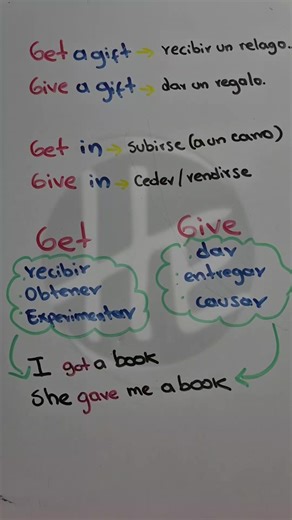 Get a gift → recibir un relago..
Give a gift → dar un regalo.
Get in → Subirse (a un carro)
Give in → Ceder/rendirse
Get
Give
· recibir
· Obtener
· Experimentar
· dar
· entregar
causar
I got a book
She gave me a book